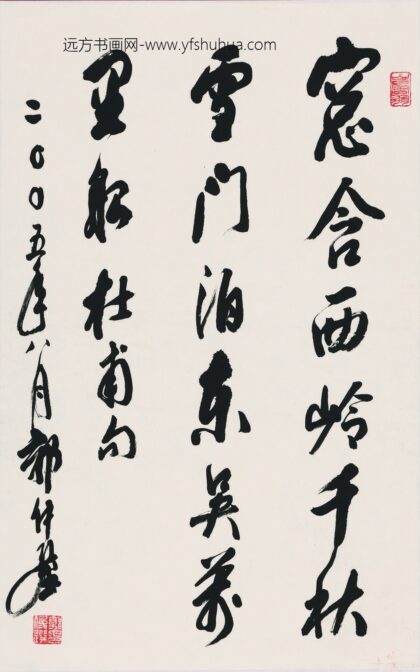 远方书画网-www.yfshuhua.com
窓含西岭千秋
雪门泊东吴萬
里船 杜甫句
二〇〇五年八月 郭